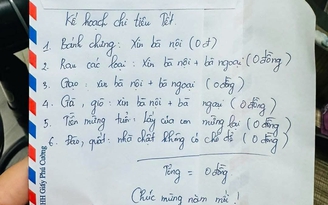 Kế hoạch chi tiêu Tết.
1. Bánh chưng: Xin bà nội (0 đ)
2. Rau các loại: Xin bà nội + bà ngoại (0 đồng)
3. Gạo: xin bà nội + bà ngoại (0 đồng)
4. Gà, giò: xin bà nội + bà ngoại (0 đồng)
5. Tiền mừng tuổi: lấy của con mừng lại (0 đồng)
6. Đào, quất: nhà chật không có chỗ để (0 đồng)
Tổng = 0 đồng
Chúc mừng năm mới!
HH Giấy Phú Cường